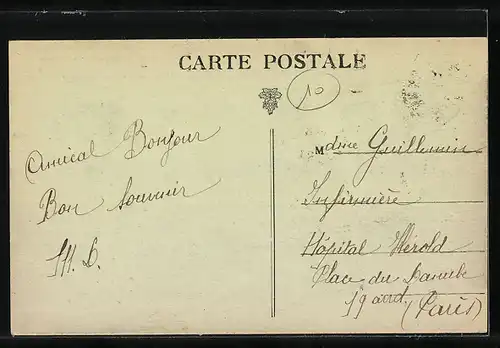 CARTE POSTALE
10
Amical Bonjour
Bon Souvenir
M. B.
Mdme Guillemin
Infirmière
Hôpital Hérold
Place du Danube
19 arrd.
(Paris)